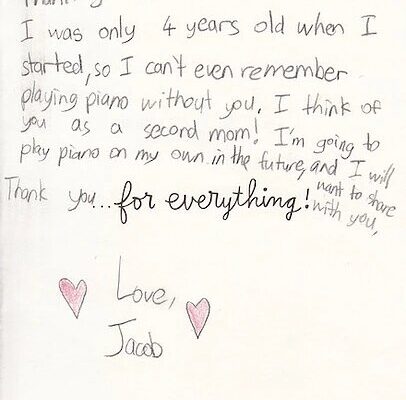 I was only 4 years old when I
started, so I can't even remember
playing piano without you. I think of
you as a second mom! I'm going to
play piano on my own in the future, and I will
want to share
with you,
Thank you...for everything!
Love,
Jacob